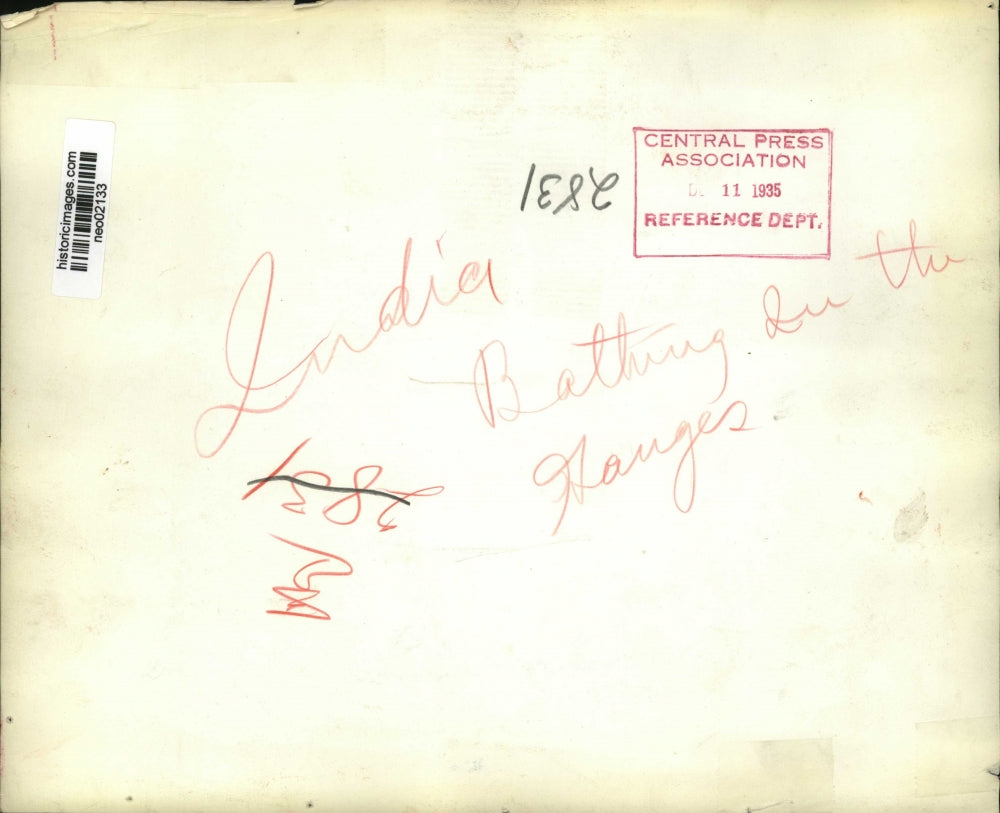 CENTRAL PRESS
ASSOCIATION
11 1935
REFERENCE DEPT.
historicimages.com
neo02133
2831
India
Bathing In the
Ganges